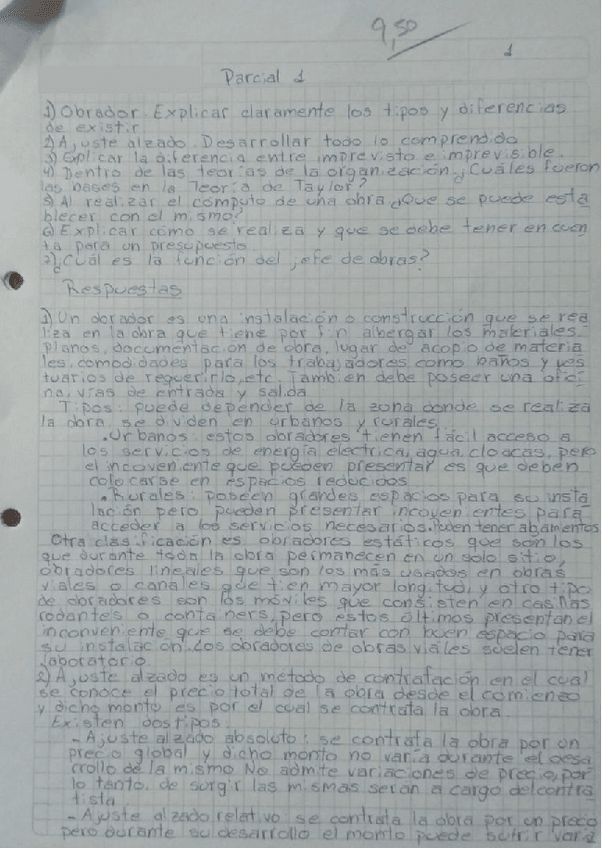 9,50
1
Parcial 1
1) Obrador. Explicar claramente los tipos y diferencias
de existir.
2) Ajuste alzado. Desarrollar todo lo comprendido
3) Explicar la diferencia entre imprevisto e imprevisible.
4) Dentro de las teorías de la organización ¿Cuáles fueron
las bases en la Teoría de Taylor?
5) Al realizar el cómputo de una obra ¿Que se puede esta
blecer con el mismo?
6) Explicar cómo se realiza y que se debe tener en cuen
ta para un presupuesto.
7) ¿Cuál es la función del jefe de obras?
Respuestas
1) Un obrador es una instalación o construcción que se rea
liza en la obra que tiene por fin albergar los materiales
planos, documentación de obra, lugar de acopio de materia
les, comodidades para los trabajadores como baños y ves
tuarios de requerirlo, etc. También debe poseer una ofici
na, vías de entrada y salida
Tipos: puede depender de la zona donde se realiza
la obra, se dividen en urbanos y rurales
.Urbanos: estos obradores tienen fácil acceso a
los servicios de energía electrica, agua, cloacas, pero
el incoveniente que pueden presentar es que deben
colocarse en espacios reducidos
.Rurales: poseen grandes espacios para su insta
lación pero pueden presentar incovenientes para
acceder a los servicios necesarios. Pueden tener abamientos
Otra clasificación es obradores estáticos que son los
que durante toda la obra permanecen en un solo sitio,
obradores lineales que son los más usados en obras
viales o canales que tienen mayor longitud, y otro tipo
de obradores son los móviles que consisten en casillas
rodantes o containers, pero estos últimos presentan el
inconveniente que se debe contar con buen espacio para
su instalación. Los obradores de obras viales suelen tener
laboratorio
2) Ajuste alzado es un método de contratación en el cual
se conoce el precio total de la obra desde el comienzo
y dicho monto es por el cual se contrata la obra.
Existen dos tipos:
- Ajuste alzado absoluto: se contrata la obra por un
precio global y dicho monto no varía durante el desa
rrollo de la mismo. No admite variaciones de precio, por
lo tanto, de surgir las mismas seran a cargo del contra
tista
- Ajuste alzado relativo se contrata la obra por un precio
pero durante su desarrollo el monto puede sufrir varia